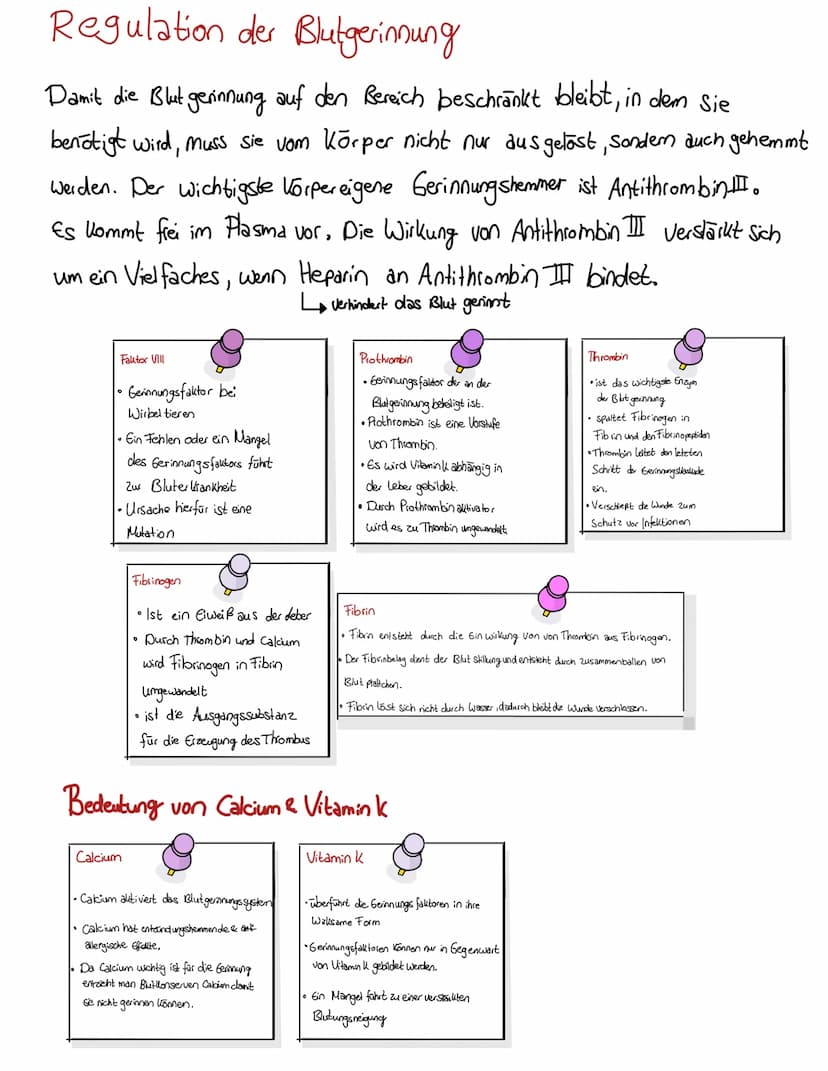 Regulation der Blutgerinnung
Damit die Blutgerinnung auf den Bereich beschränkt bleibt, in dem sie
benötigt wird, muss sie vom Körper nicht nur ausgelöst, sondern auch gehemmt
werden. Der wichtigste körpereigene Gerinnungshemmer ist Antithrombin III.
Es kommt frei im Plasma vor. Die Wirkung von Antithrombin III verstärkt sich
um ein Vielfaches, wenn Heparin an Antithrombin III bindet.
↳ verhindert das Blut gerinnt
Faktor VIII
• Gerinnungsfaktor bei
Wirbeltieren
• Ein Fehlen oder ein Mangel
des Gerinnungsfaktors führt
zur Bluterkrankheit
• Ursache hierfür ist eine
Mutation
Prothrombin
• Gerinnungsfaktor der an der
Blutgerinnung beteiligt ist.
• Prothrombin ist eine Vorstufe
von Thrombin.
• Es wird Vitamin K abhängig in
der Leber gebildet.
• Durch Prothrombinaktivator
wird es zu Thrombin umgewandelt
Thrombin
• ist das wichtigste Enzym
der Blutgerinnung
• spaltet Fibrinogen in
Fibrin und den Fibrinopeptiden
• Thrombin leitet den letzten
Schritt der Gerinnungskaskade
ein.
• Verschließt die Wunde zum
Schutz vor Infektionen
Fibrinogen
• Ist ein Eiweiß aus der Leber
• Durch Thrombin und Calcium
wird Fibrinogen in Fibrin
umgewandelt
• ist die Ausgangssubstanz
für die Erzeugung des Thrombus
Fibrin
• Fibrin entsteht durch die Einwirkung von von Thrombin aus Fibrinogen.
• Der Fibrinbelag dient der Blutstillung und entsteht durch zusammenballen von
Blutplättchen.
• Fibrin löst sich nicht durch Wasser, dadurch bleibt die Wunde verschlossen.
Bedeutung von Calcium & Vitamin K
Calcium
• Calcium aktiviert das Blutgerinnungssystem
• Calcium hat entzündungshemmende & anti
allergische Effekte.
• Da Calcium wichtig ist für die Gerinnung
entzieht man Blutkonserven Calcium damit
sie nicht gerinnen können.
Vitamin K
• überführt die Gerinnungsfaktoren in ihre
Wirksame Form
• Gerinnungsfaktoren können nur in Gegenwart
von Vitamin K gebildet werden.
• Ein Mangel führt zu einer verstärkten
Blutungsneigung